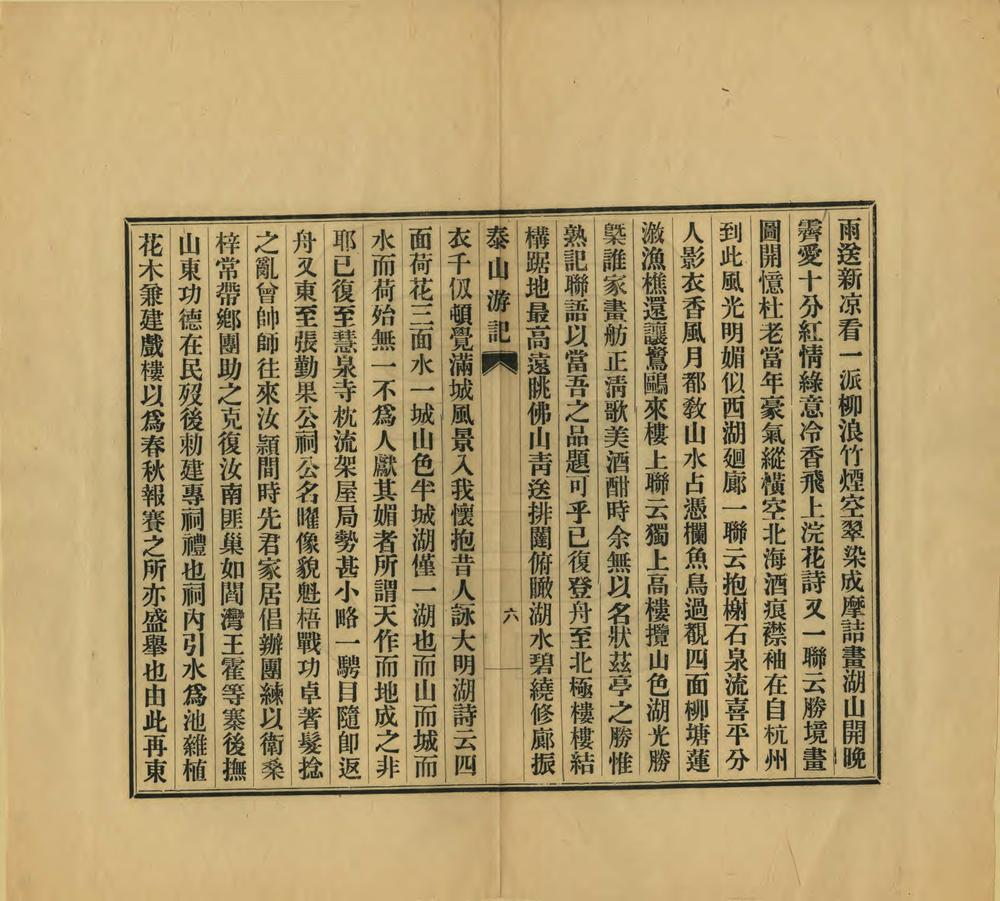 雨送新凉看一派柳浪竹煙空翠染成摩詰畫湖山開晚
霽愛十分紅情綠意冷香飛上浣花詩又一聯云勝境畫
圖開憶杜老當年豪氣縱橫空北海酒痕襟袖在自杭州
到此風光明媚似西湖廻廊一聯云抱榭石泉流喜平分
人影衣香風月都敎山水占憑欄魚鳥過覩四面柳塘蓮
漵漁樵還讓鷺鷗來樓上聯云獨上高樓攬山色湖光勝
槩誰家畫舫正淸歌美酒酣時余無以名狀茲亭之勝惟
熟記聯語以當吾之品題可乎已復登舟至北極樓樓結
構踞地最高遠眺佛山靑送排闥俯瞰湖水碧繞修廊振
泰山游記
六
衣千仭頓覺滿城風景入我懷抱昔人詠大明湖詩云四
面荷花三面水一城山色半城湖僅一湖也而山而城而
水而荷始無一不爲人獻其媚者所謂天作而地成之非
耶已復至慧泉寺枕流架屋局勢甚小略一騁目隨卽返
舟又東至張勤果公祠公名曜像貌魁梧戰功卓著髮捻
之亂曾帥師往來汝潁間時先君家居倡辦團練以衛桑
梓常帶鄕團助之克復汝南匪巢如閻灣王霍等寨後撫
山東功德在民歿後勅建專祠禮也祠內引水爲池雜植
花木兼建戲樓以爲春秋報賽之所亦盛舉也由此再東